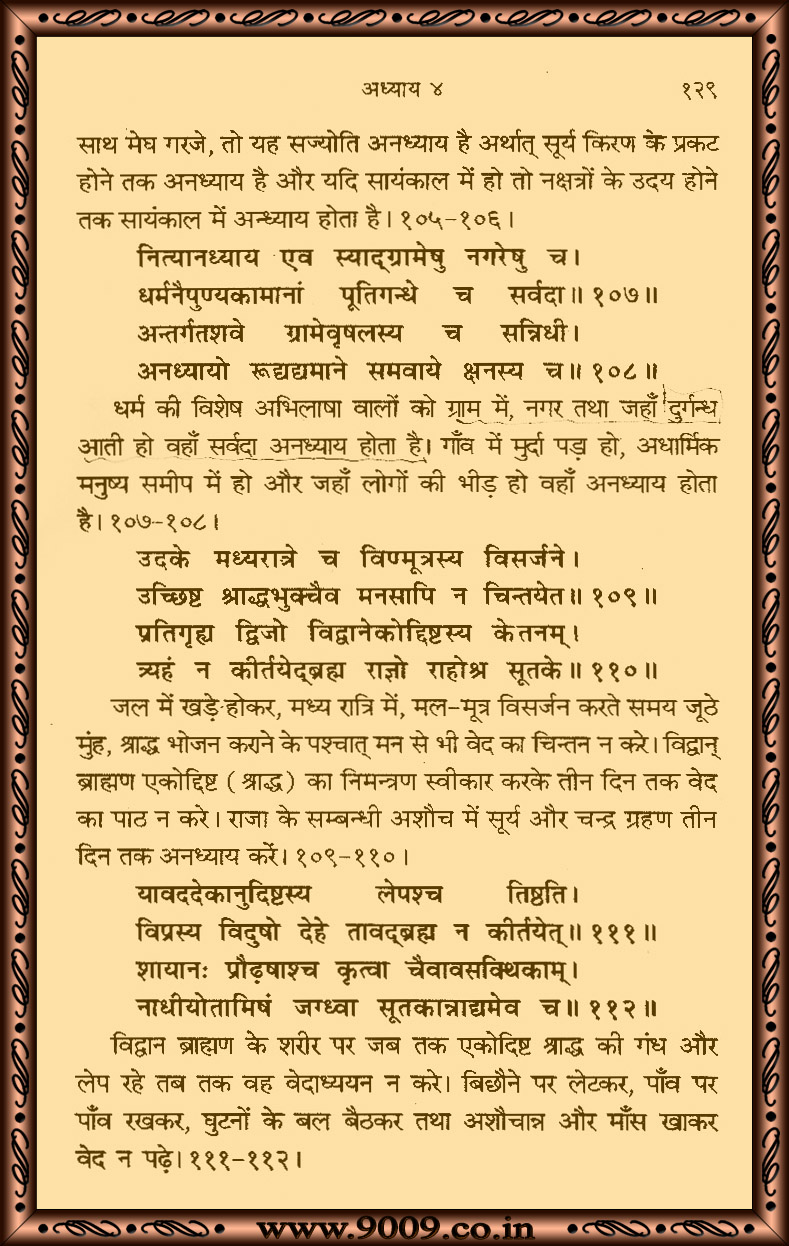 अध्याय ४ १२९
साथ मेघ गरजे, तो यह सज्योति अनध्याय है अर्थात् सूर्य किरण के प्रकट
होने तक अनध्याय है और यदि सायंकाल में हो तो नक्षत्रों के उदय होने
तक सायंकाल में अन्ध्याय होता है। १०५-१०६।
नित्यानध्याय एव स्याद्ग्रामेषु नगरेषु च।
धर्मनैपुण्यकामानां पूतिगन्धे च सर्वदा॥ १०७॥
अन्तर्गतशवे ग्रामेवृषलस्य च सन्निधी।
अनध्यायो रूद्यद्यमाने समवाये क्षनस्य च॥ १०८॥
धर्म की विशेष अभिलाषा वालों को ग्राम में, नगर तथा जहाँ दुर्गन्ध
आती हो वहाँ सर्वदा अनध्याय होता है। गाँव में मुर्दा पड़ा हो, अधार्मिक
मनुष्य समीप में हो और जहाँ लोगों की भीड़ हो वहाँ अनध्याय होता
है। १०७-१०८।
उदके मध्यरात्रे च विण्मूत्रस्य विसर्जने।
उच्छिष्ट श्राद्धभुक्चैव मनसापि न चिन्तयेत॥ १०९॥
प्रतिगृह्य द्विजो विद्वानेकोद्दिष्टस्य केतनम्।
त्र्यहं न कीर्तयेद्ब्रह्म राज्ञो राहोश्र सूतके॥ ११०॥
जल में खड़े होकर, मध्य रात्रि में, मल-मूत्र विसर्जन करते समय जूठे
मुंह, श्राद्ध भोजन कराने के पश्चात् मन से भी वेद का चिन्तन न करे। विद्वान्
ब्राह्मण एकोद्दिष्ट ( श्राद्ध ) का निमन्त्रण स्वीकार करके तीन दिन तक वेद
का पाठ न करे। राजा के सम्बन्धी अशौच में सूर्य और चन्द्र ग्रहण तीन
दिन तक अनध्याय करें। १०९-११०।
यावददेकानुदिष्टस्य लेपश्च तिष्ठति।
विप्रस्य विदुषो देहे तावद्ब्रह्म न कीर्तयेत्॥ १११॥
शायानः प्रौढ़षाश्च कृत्वा चैवावसक्थिकाम्।
नाधीयोतामिषं जग्ध्वा सूतकान्नाद्यमेव च॥ ११२॥
विद्वान ब्राह्मण के शरीर पर जब तक एकोदिष्ट श्राद्ध की गंध और
लेप रहे तब तक वह वेदाध्ययन न करे। बिछौने पर लेटकर, पाँव पर
पाँव रखकर, घुटनों के बल बैठकर तथा अशौचान्न और माँस खाकर
वेद न पढ़े। १११-११२।
www.9009.co.in